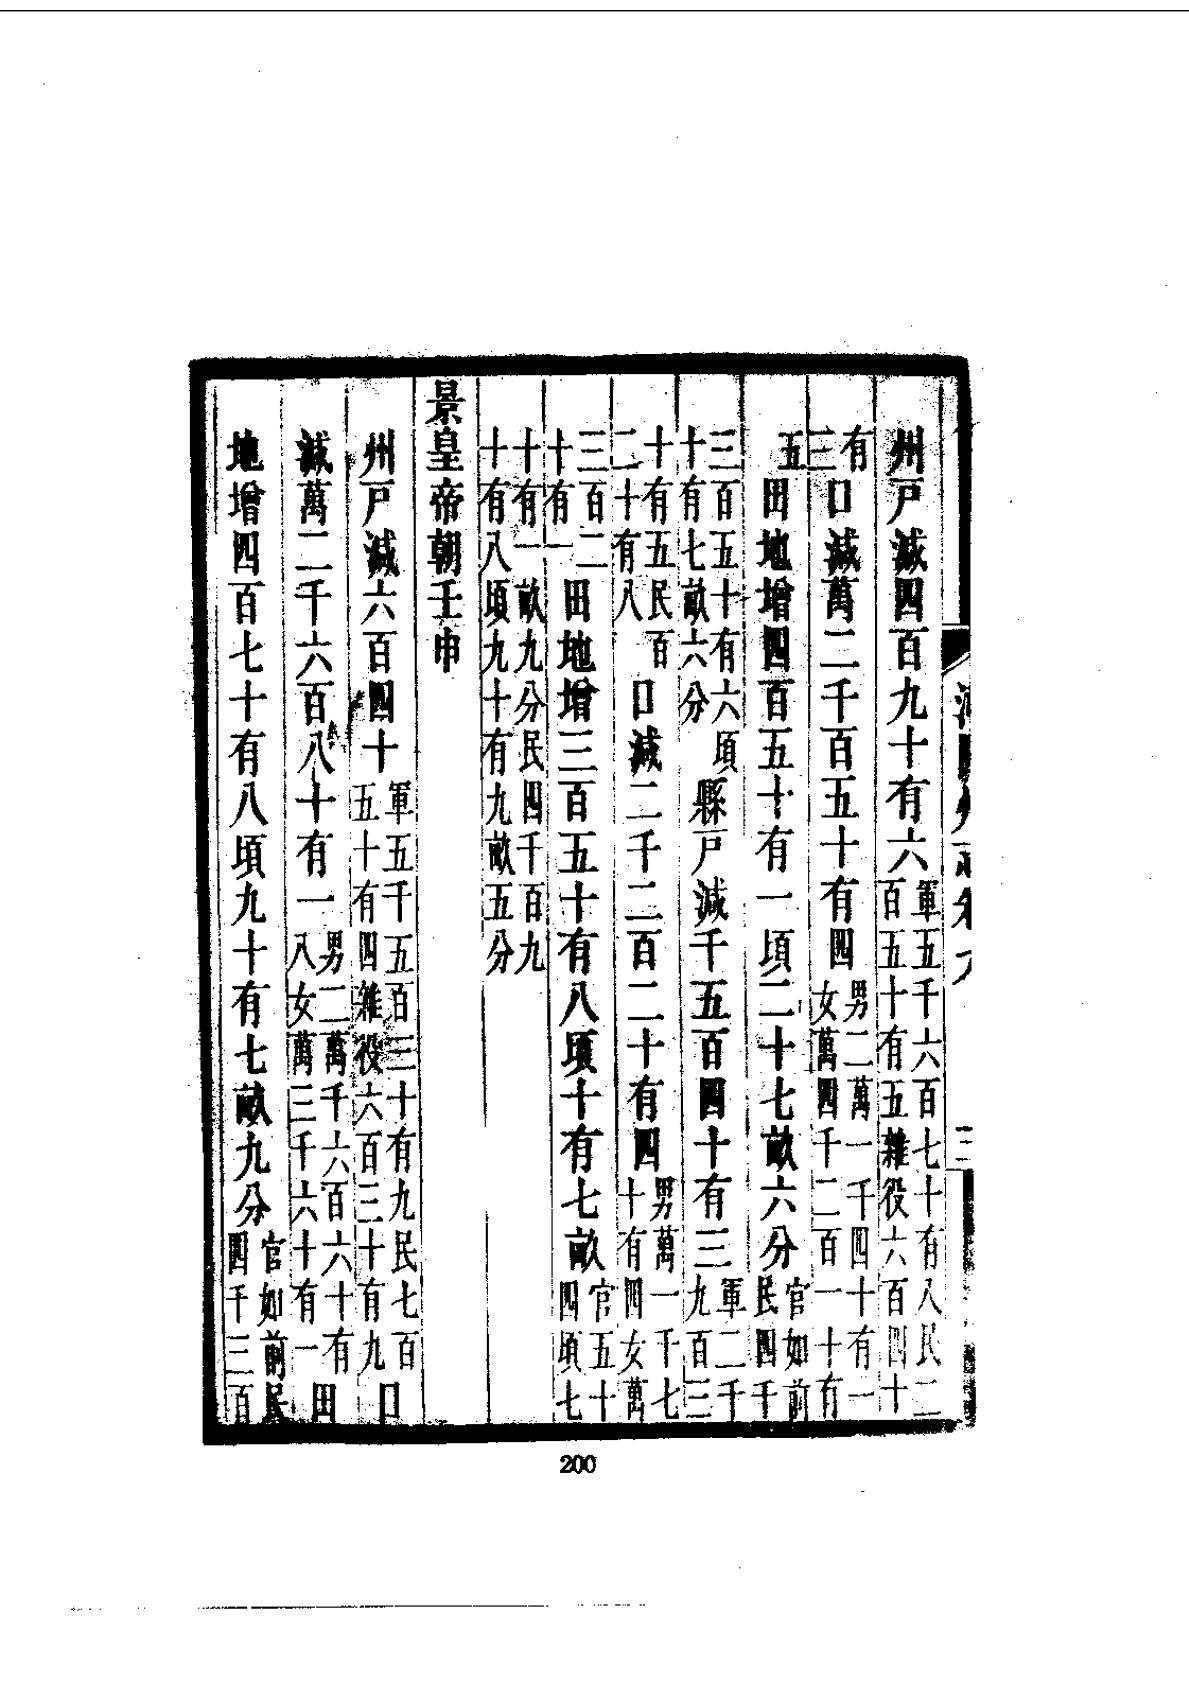 州戸減四百九十有六軍五千六百七十有八民二百五十有五雜役六百四十
有三口減萬二千百五十有四男二萬一千四十有一女萬四千二百一十有
五田地增四百五十有一頃二十七畝六分官如前民四千
三百五十有六頃十有七畝六分縣戸減千五百四十有三軍二千九百三
十有五民百二十有八口減二千二百二十有四男萬一千七十有四女萬
三百二十有一田地增三百五十有八頃十有七畝官五十四頃七
十有一畝九分民四千百九十有八頃九十有九畝五分
景皇帝朝壬申
州戸減六百四十軍五千五百三十有九民七百五十有四雜役六百三十有九口
減萬二千六百八十有一男二萬千六百六十有八女萬三千六十有一田
地增四百七十有八頃九十有七畝九分官如前民四千三百
三
200